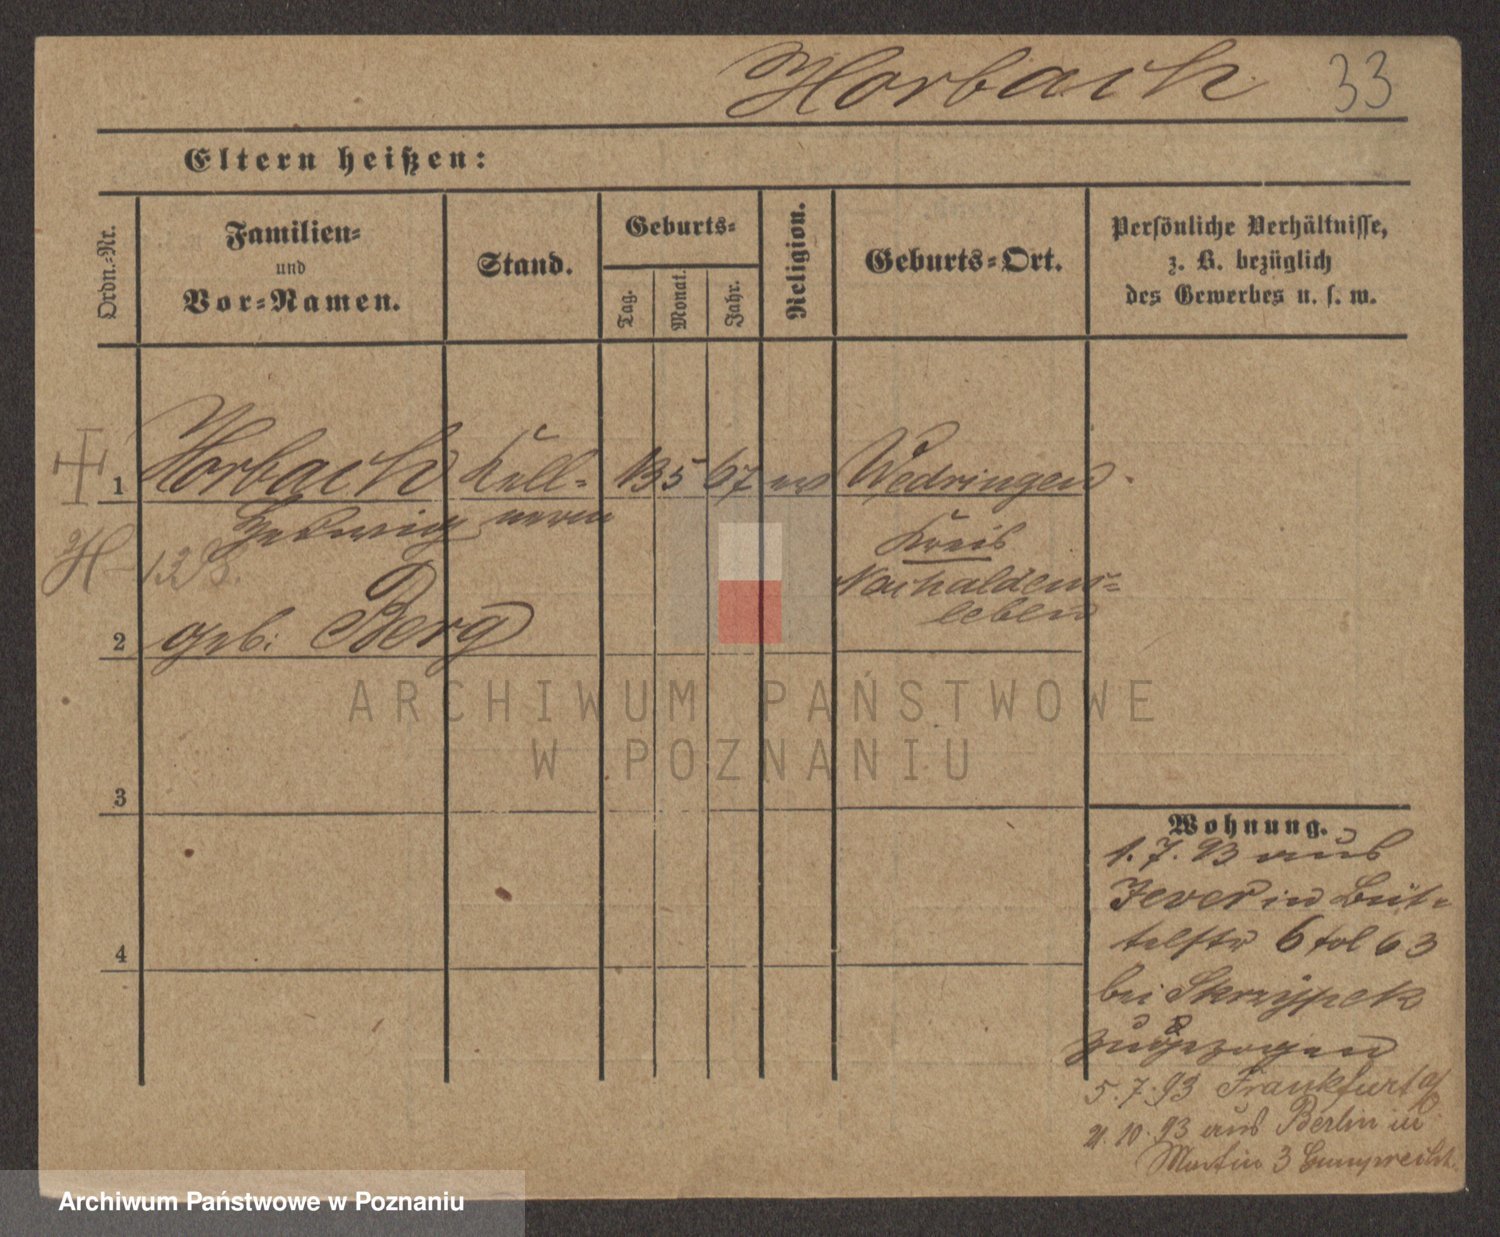 Horbach 33
Eltern heißen:
Ordn.-Nr.
Familien-
und
Vor-Namen.
Stand.
Geburts-
Tag.
Monat.
Jahr.
Religion.
Geburts-Ort.
Persönliche Verhältnisse,
z. B. bezüglich
des Gewerbes u. s. w.
1 Horbach Kell- 13 5 67 ev Wedringen
Hedwig nerin
Kreis
Nachaldens-
leben
2 geb. Berg
ARCHIWUM PAŃSTWOWE
W POZNANIU
3
4
Wohnung.
1.7.93 aus
Jever in Büt-
telstr 6 fol 63
bei Skrzypek
zugezogen
5.7.93 Frankfurt a/O
21.10.93 aus Berlin in
Martin 3 Gumprecht
Archiwum Państwowe w Poznaniu